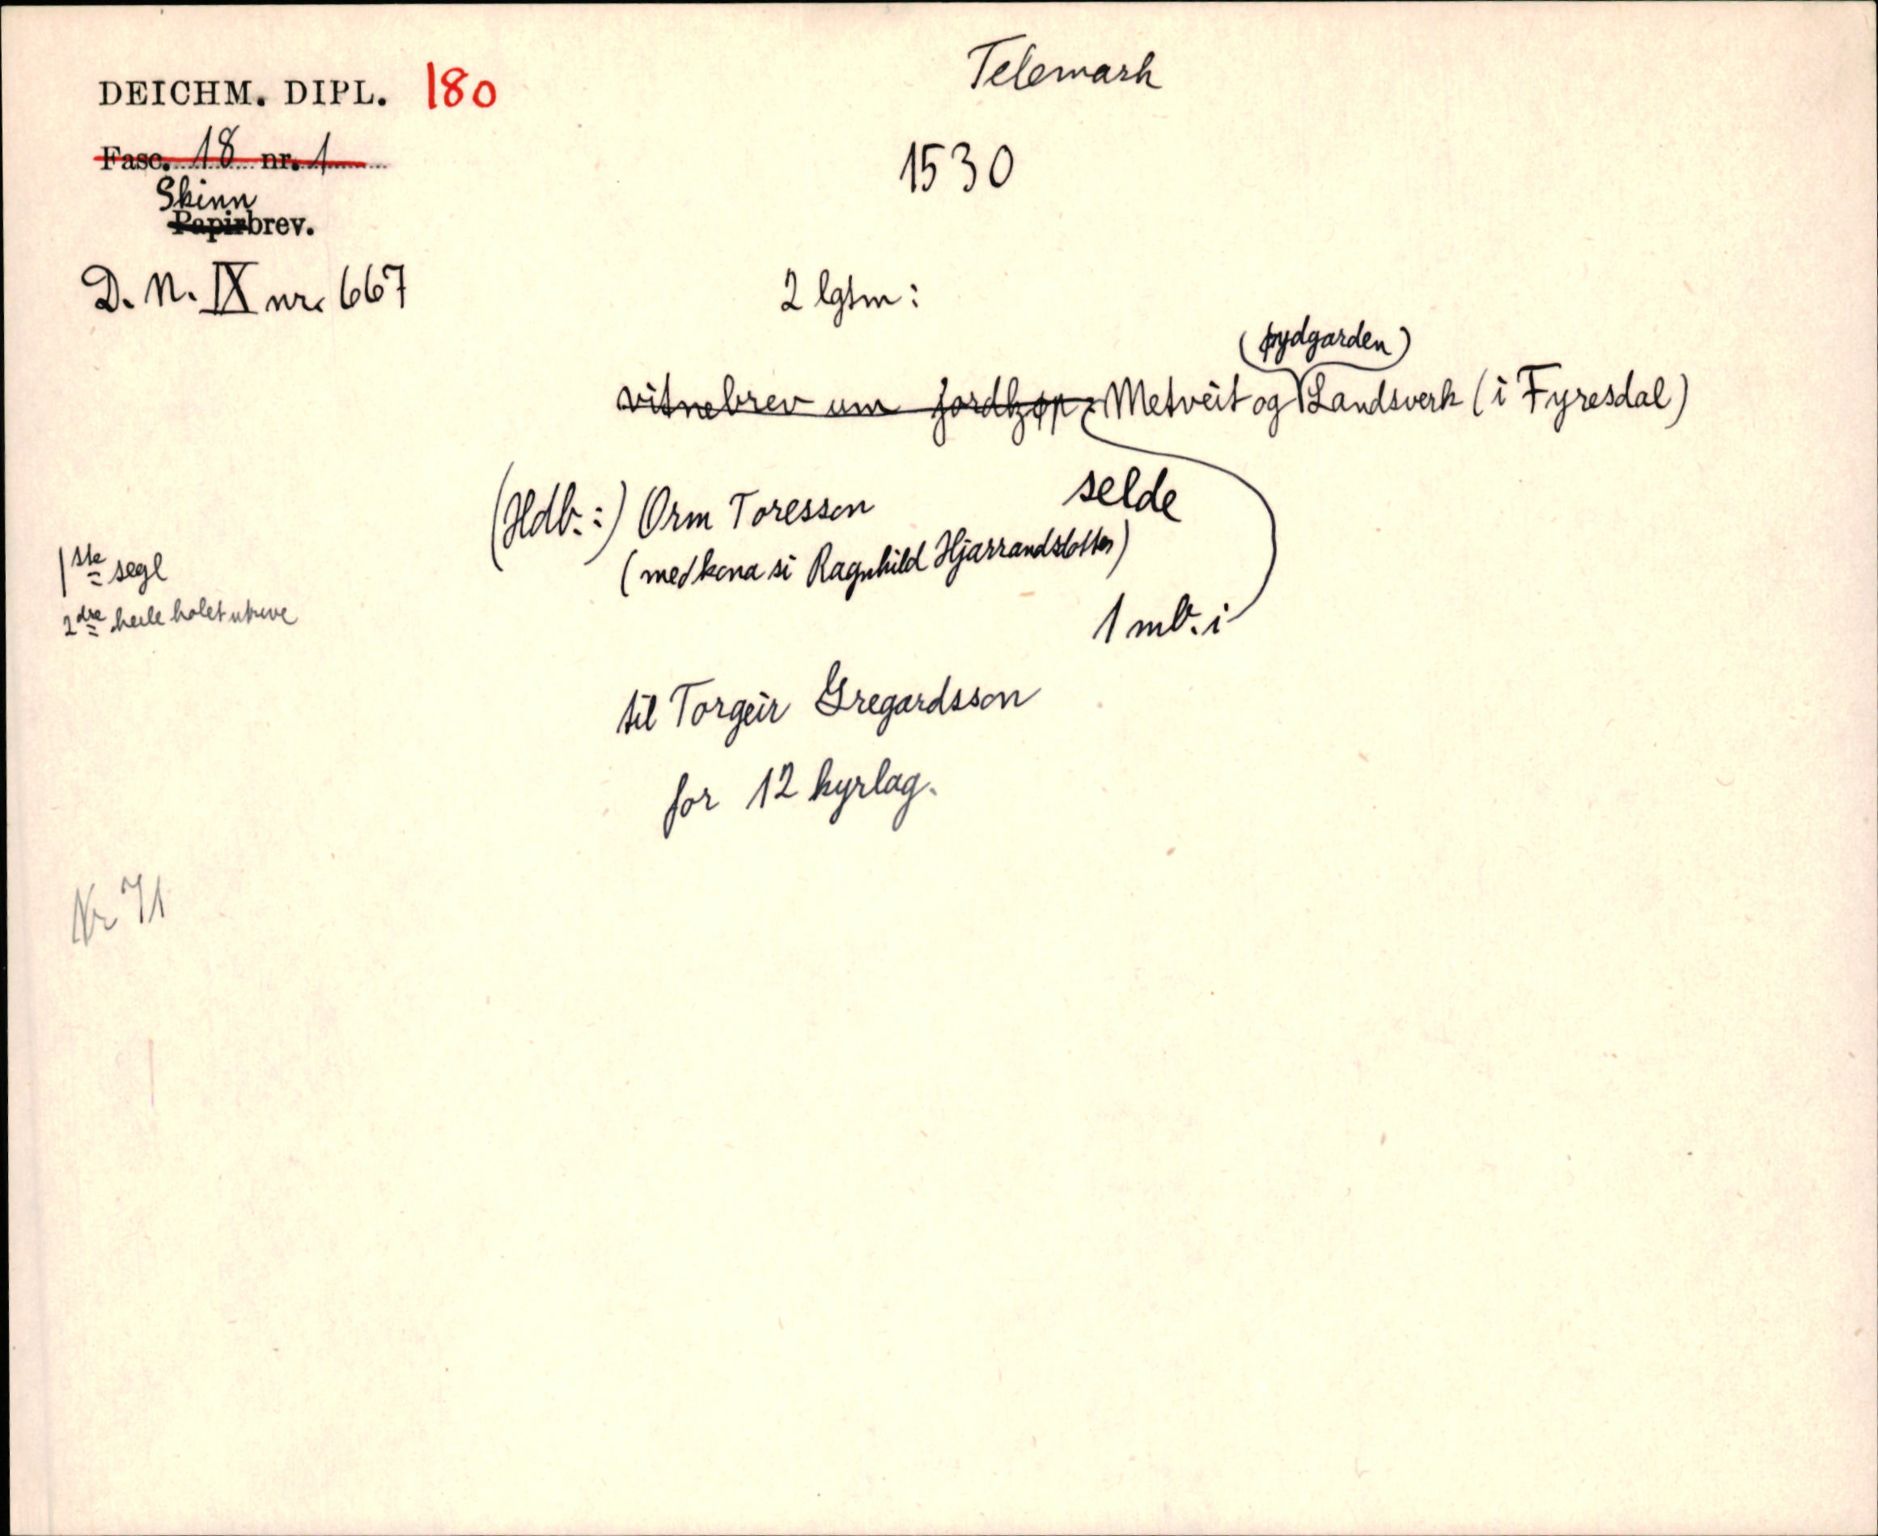 Telemark
DEICHM. DIPL. 180
Fasc. 18 nr. 1
1530
Skinn
Papirbrev.
D. N. IX nr. 667
2 lgtm:
(øydgarden)
vitnebrev um jordkjøp: Metveit og Landsverk (i Fyresdal)
(Hdb.:) Orm Toresson selde
(med kona si Ragnhild Hjarrandsdotter)
1ste segl
2dre heile holet utrive
1 mb. i
til Torgeir Gregardsson
for 12 kyrlag.
Nr 71